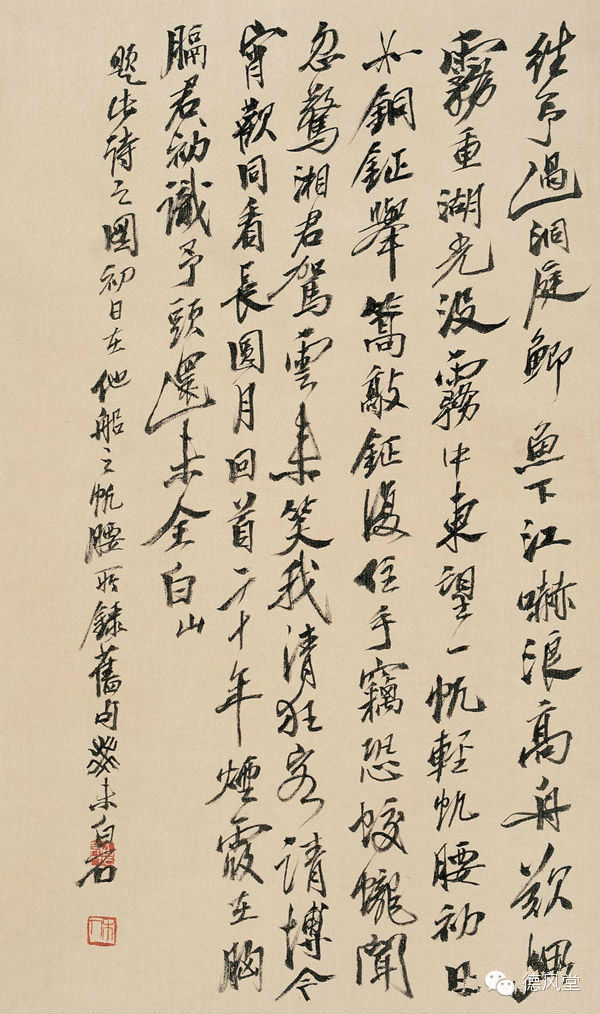 往予過洞庭鯽魚下江嚇浪高舟欲
霧重湖光沒霧中東望一帆輕帆腰初日
如銅鉦舉篙敲鉦復住手竊恐蛟龍聞
忽驚湘君駕雲來笑我清狂客請博今
宵歡同看長圓月回首二十年煙霞在胸
膈君初識予頭還未全白山
題此詩之圖初日在他船之帆腰錄舊句癸未白石
木人
德风堂